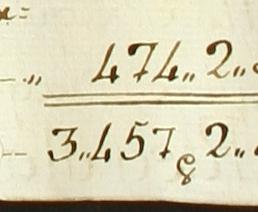 474,, 2,,
3,,457 2,,